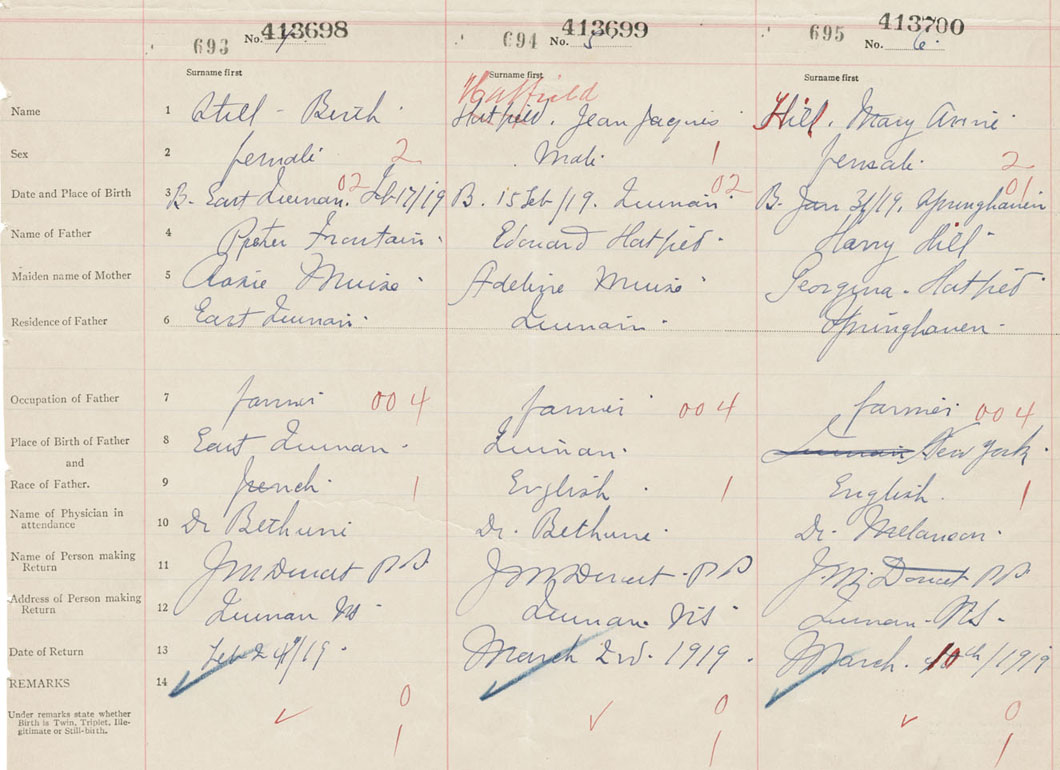 693 No. 413698 694 No. 5 413699 695 No. 6 413700
Surname first Surname first Surname first
Hatfield
Name 1 Still - Birth Hatfied. Jean Jaques Hill. Mary Annie
Sex 2 female 2 Male 1 female 2
02 02 01
Date and Place of Birth 3 B. East Quinan. Feb 17/19 B. 15 Feb/19. Quinan B. Jan 31/19. Springhaven
Name of Father 4 Frontain Edouard Hatfied Harry Hill
Maiden name of Mother 5 Rosie Muise Adeline Muise Georgina. Hatfied
Residence of Father 6 East Quinan Quinan Springhaven
Occupation of Father 7 farmer 004 farmer 004 farmer 004
Place of Birth of Father 8 East Quinan Quinan Quinan New York
and
Race of Father. 9 french 1 English 1 English 1
Name of Physician in
attendance 10 Dr Bethune Dr. Bethune Dr. Melanson
Name of Person making
Return 11 J M Doucet J. M. Doucet J. M. Doucet
Address of Person making
Return 12 Quinan NS Quinan. NS Quinan. NS.
Date of Return 13 /19 March 2nd. 1919 March. 10th/1919
REMARKS 14
0 0 0
Under remarks state whether
Birth is Twin, Triplet, Ille-
gitimate or Still-birth.
1 1 1